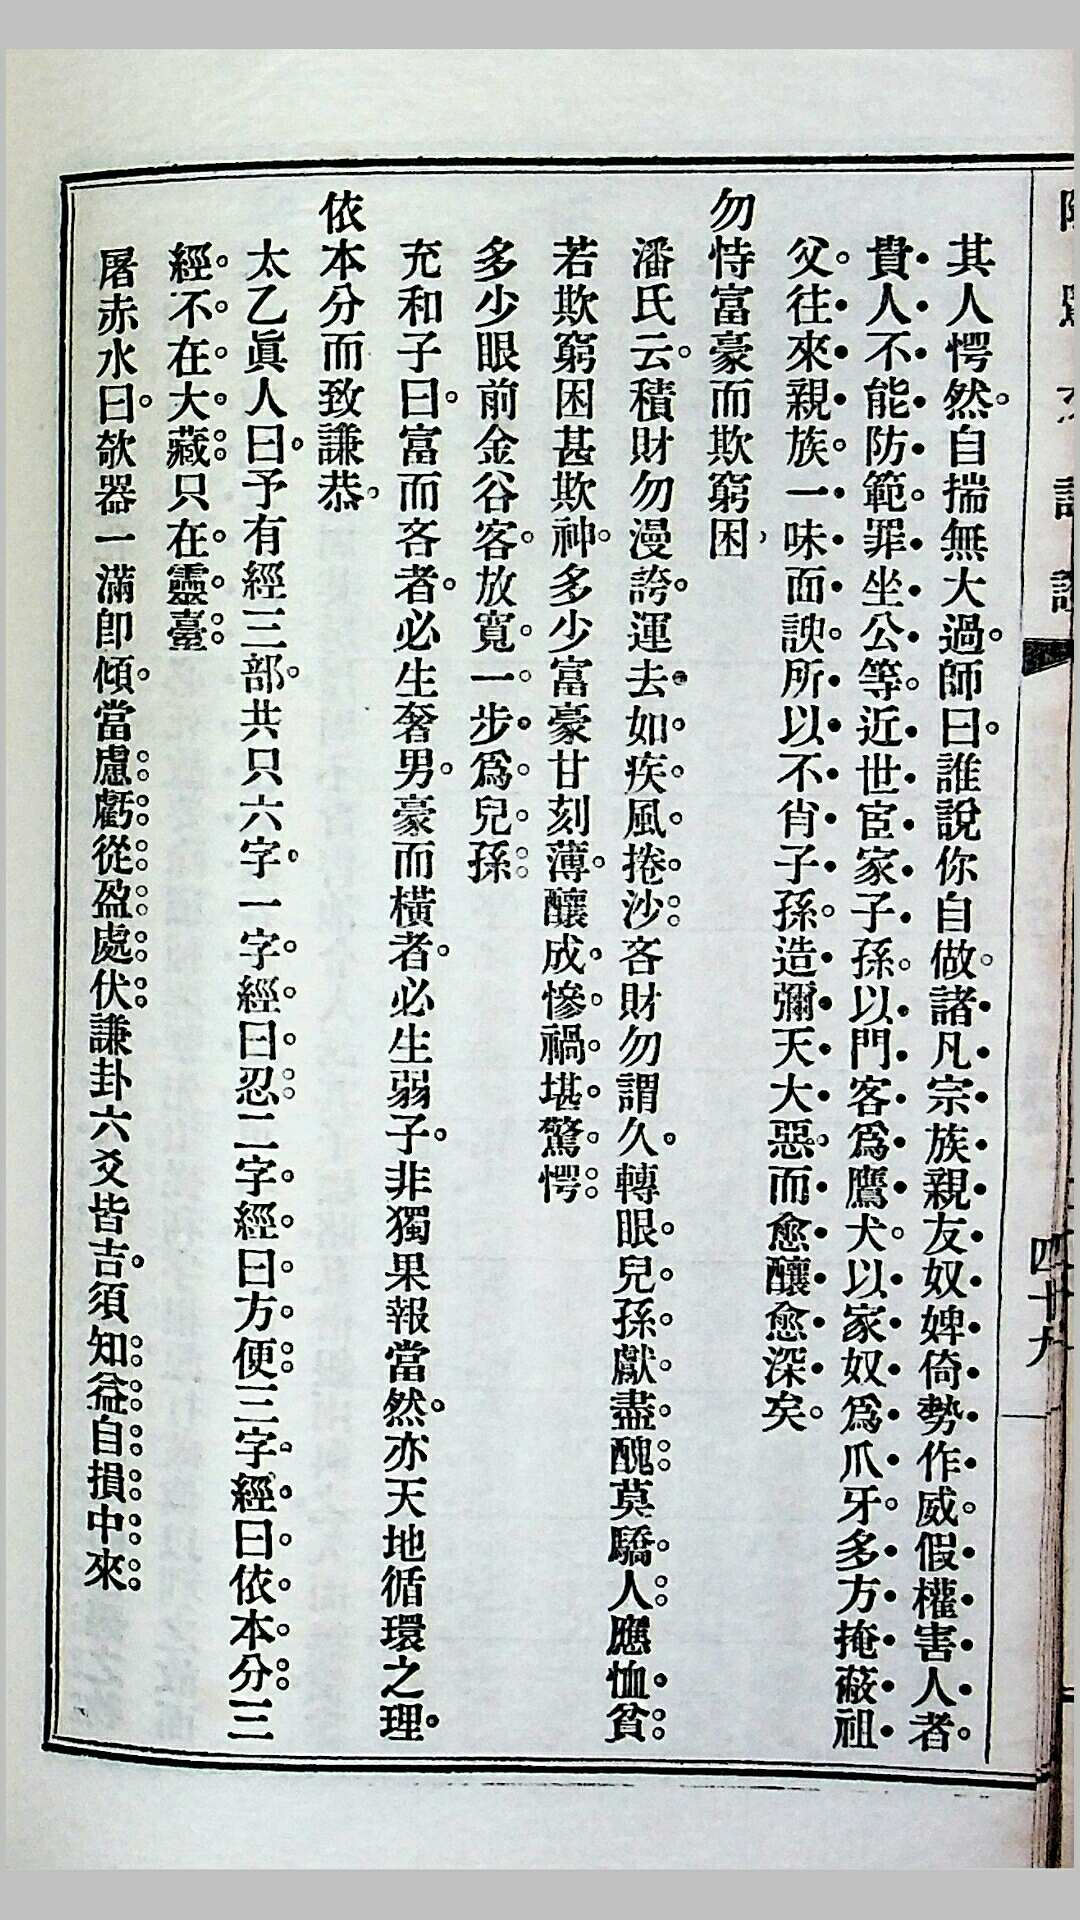 四十九
其人愕然。自揣無大過。師曰。誰說你自做。諸凡宗族親友奴婢倚勢作威。假權害人者。
貴人不能防範。罪坐公等。近世宦家子孫。以門客爲鷹犬。以家奴爲爪牙。多方掩蔽祖
父。往來親族。一味面諛。所以不肖子孫。造彌天大惡。而愈釀愈深矣。
勿恃富豪而欺窮困，
潘氏云。積財勿漫誇。運去如疾風捲沙。吝財勿謂久。轉眼兒孫獻盡醜。莫驕人。應恤貧。
若欺窮困甚欺神。多少富豪甘刻薄。釀成慘禍堪驚愕。
多少眼前金谷客。放寬一步爲兒孫。
充和子曰。富而吝者。必生奢男。豪而橫者。必生弱子。非獨果報當然。亦天地循環之理。
依本分而致謙恭。
太乙眞人曰。予有經三部。共只六字。一字經曰忍。二字經曰方便。三字經曰依本分。三
經不在大藏。只在靈臺。
屠赤水曰。欹器一滿卽傾。當慮虧從盈處伏。謙卦六爻皆吉。須知益自損中來。